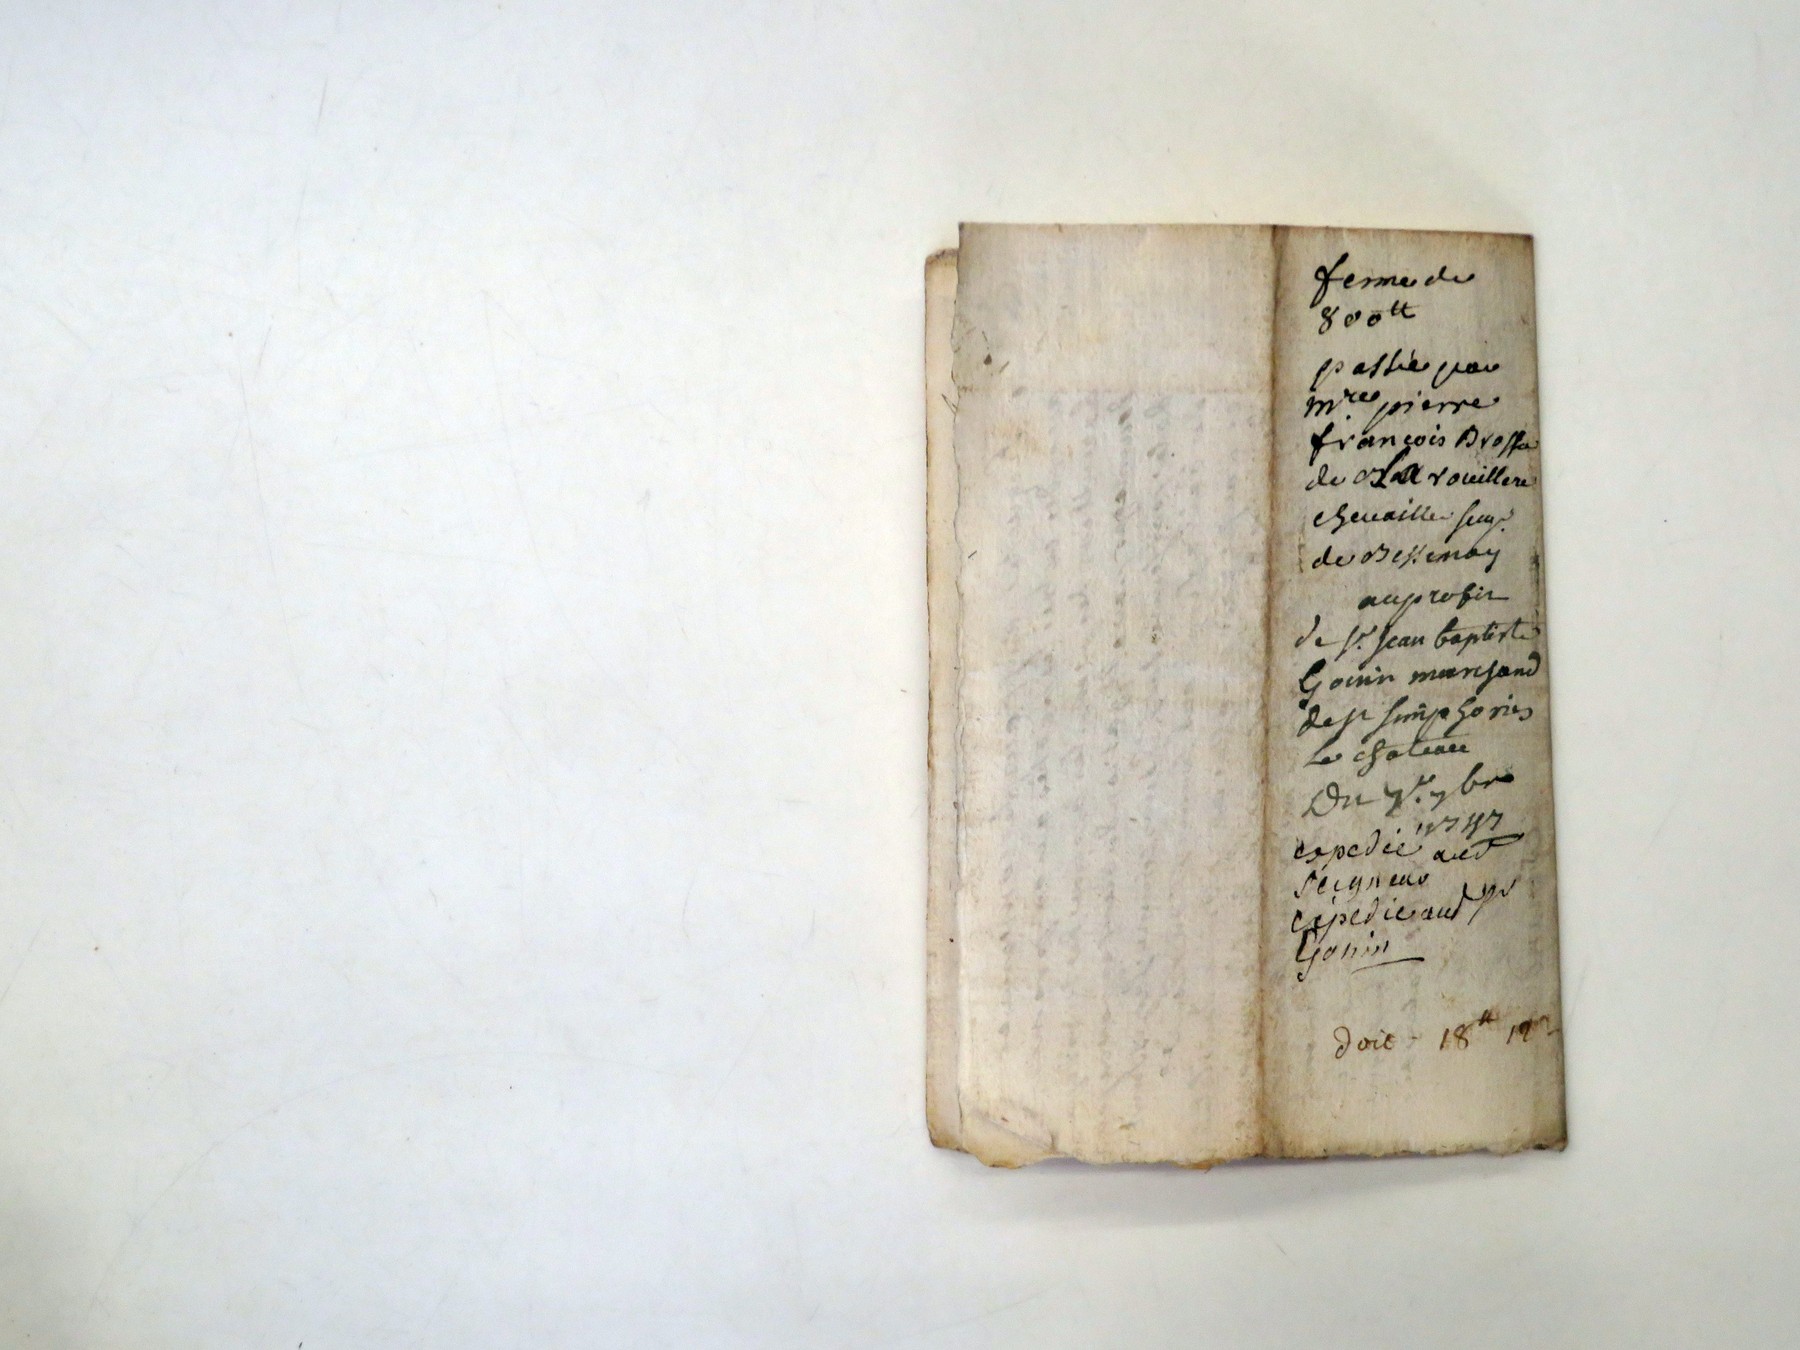 ferme de
800tt
passée par
mre pierre
françois Brosse
de La rouillere
chevailler seigr
de Bessenay
au profit
de sr jean baptiste
Gonin marchand
de st simphorien
Le chateau
Du 7bre
1747
expedié aud
seigneur
expedié aud sr
Gonin
doit - 18tt